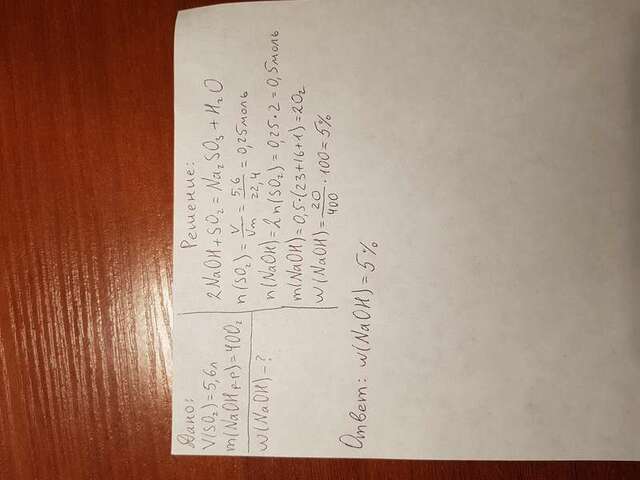 Дано:
V(SO₂)=5,6л
m(NaOH р-р)=400г
w(NaOH)-?
Решение:
2NaOH+SO₂=Na₂SO₃+H₂O
n(SO₂)=V/Vm=5,6/22,4=0,25моль
n(NaOH)=2n(SO₂)=0,25·2=0,5моль
m(NaOH)=0,5·(23+16+1)=20г
w(NaOH)=20/400·100=5%
Ответ: w(NaOH)=5%